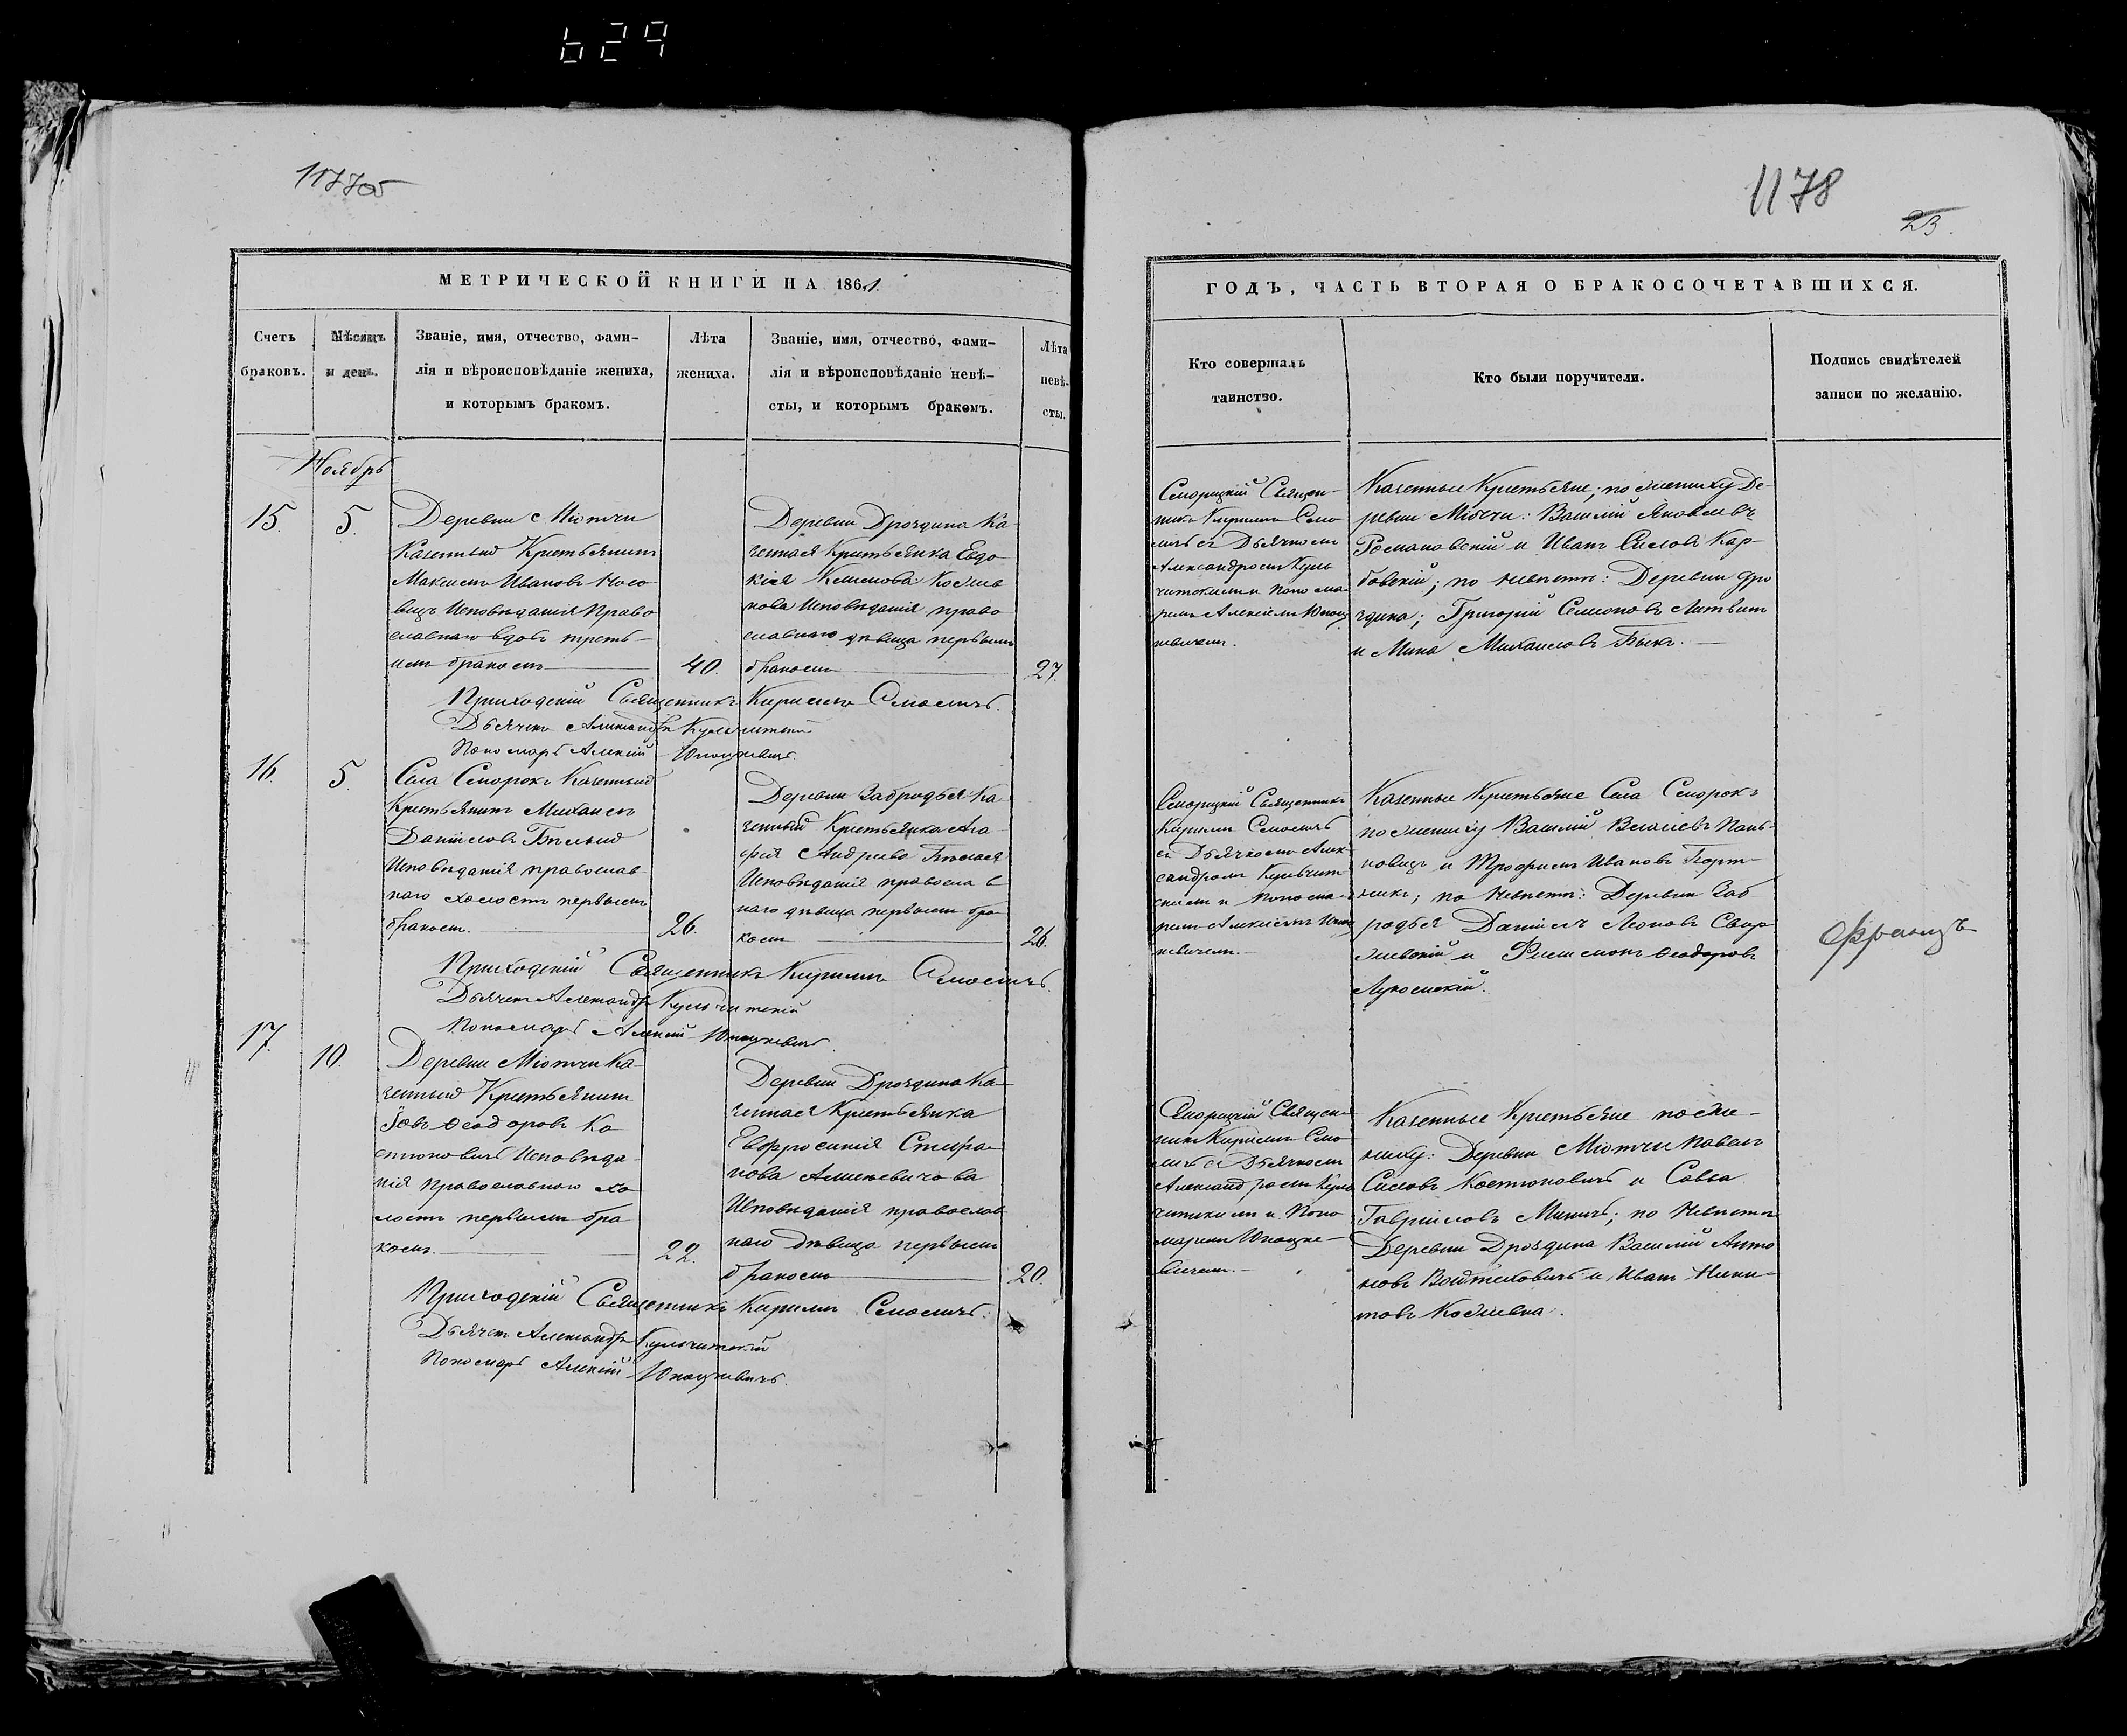 629
1177об
1178
23.
МЕТРИЧЕСКОЙ КНИГИ НА 1861.
Счетъ
браковъ.
Мѣсяцъ
и день.
Званіе, имя, отчество, фами-
лія и вѣроисповѣданіе жениха,
и которымъ бракомъ.
Лѣта
жениха.
Званіе, имя, отчество, фами-
лія и вѣроисповѣданіе невѣ-
сты, и которымъ бракомъ.
Лѣта
невѣ-
сты.
Ноябрь
15.
5.
Деревни Міотчи
Казенный Крестьянинъ
Максимъ Ивановъ
Исповѣданія Право
славнаго вдовъ треть-
имъ бракомъ
40.
Деревни Дроздина Ка
зенная Крестьянка Евдо
кія
нова Исповѣданія право
славнаго дѣвица первымъ
бракомъ
27.
Приходскій Священникъ Кириллъ Смоличъ.
Дьячекъ Александръ Кульчитскій
Пономарь Алексій Юноцкевичъ.
16.
5.
Села Сморокъ Казенный
Крестьянинъ Михаилъ
Даніиловъ Бѣлый
Исповѣданія православ
наго холостъ первымъ
бракомъ.
26.
Деревни Забродья Ка
зенный Крестьянка Ага
фія Андреева Бѣлая
Исповѣданія православ
наго дѣвица первымъ бра
комъ
26.
Приходскій Священникъ Кириллъ Смоличъ.
Дьячекъ Александръ Кульчитскій
Пономарь Алексій Юноцкевичъ.
17.
10.
Деревни Міотчи Ка-
зенный Крестьянинъ
Іовъ Ѳеодоровъ Ко
стюковичъ Исповѣда
нія Православнаго хо
лостъ первымъ бра
комъ.
22.
Деревни Дроздина Ка-
зенная Крестьянка
Евфросинія Стефа-
нова
Исповѣданія православ
наго дѣвица первымъ
бракомъ
20.
Приходскій Священникъ Кириллъ Смоличъ.
Дьячекъ Александръ Кульчитскій
Пономарь Алексій Юноцкевичъ.
ГОДЪ, ЧАСТЬ ВТОРАЯ О БРАКОСОЧЕТАВШИХСЯ.
Кто совершалъ
таинство.
Кто были поручители.
Подпись свидѣтелей
записи по желанію.
Сморицкій Священ-
никъ Кириллъ Смо
личъ съ Дьячкомъ
Александромъ Куль
читскимъ и Понома
ремъ Алексіемъ Юноц
кевичемъ.
Казенные Крестьяне; по жениху Де-
ревни Міотчи: Василій Яковлевъ
Романовскій и Иванъ Силовъ Кар-
бовскій; по невѣстѣ: Деревни Дро
здина; Григорій Семеновъ Литвинъ
и Мина Михаиловъ Быкъ.
Сморицкій Священникъ
Кириллъ Смоличъ
съ Дьячкомъ Алек
сандромъ Кульчит
скимъ и Понома
ремъ Алексіемъ Юноц
кевичемъ.
Казенные Крестьяне Села Сморокъ
по жениху Василій
и Трофимъ Ивановъ
по Невѣстѣ: Деревни Заб
родья Даніилъ Леоновъ
и Филимонъ Ѳеодоровъ
Францъ
Сморицкій Священ
никъ Кириллъ Смо
личъ съ Дьячкомъ
Александромъ Куль
читскимъ и Поно
маремъ Юноцке-
вичемъ.
Казенные Крестьяне по же-
ниху: Деревни Міотчи Павелъ
Силовъ Костюковичъ и Савва
Гавріиловъ Миничъ; по Невѣстѣ
Деревни Дроздина Василій Анто
новъ Войтеховичъ и Иванъ Ники-
товъ